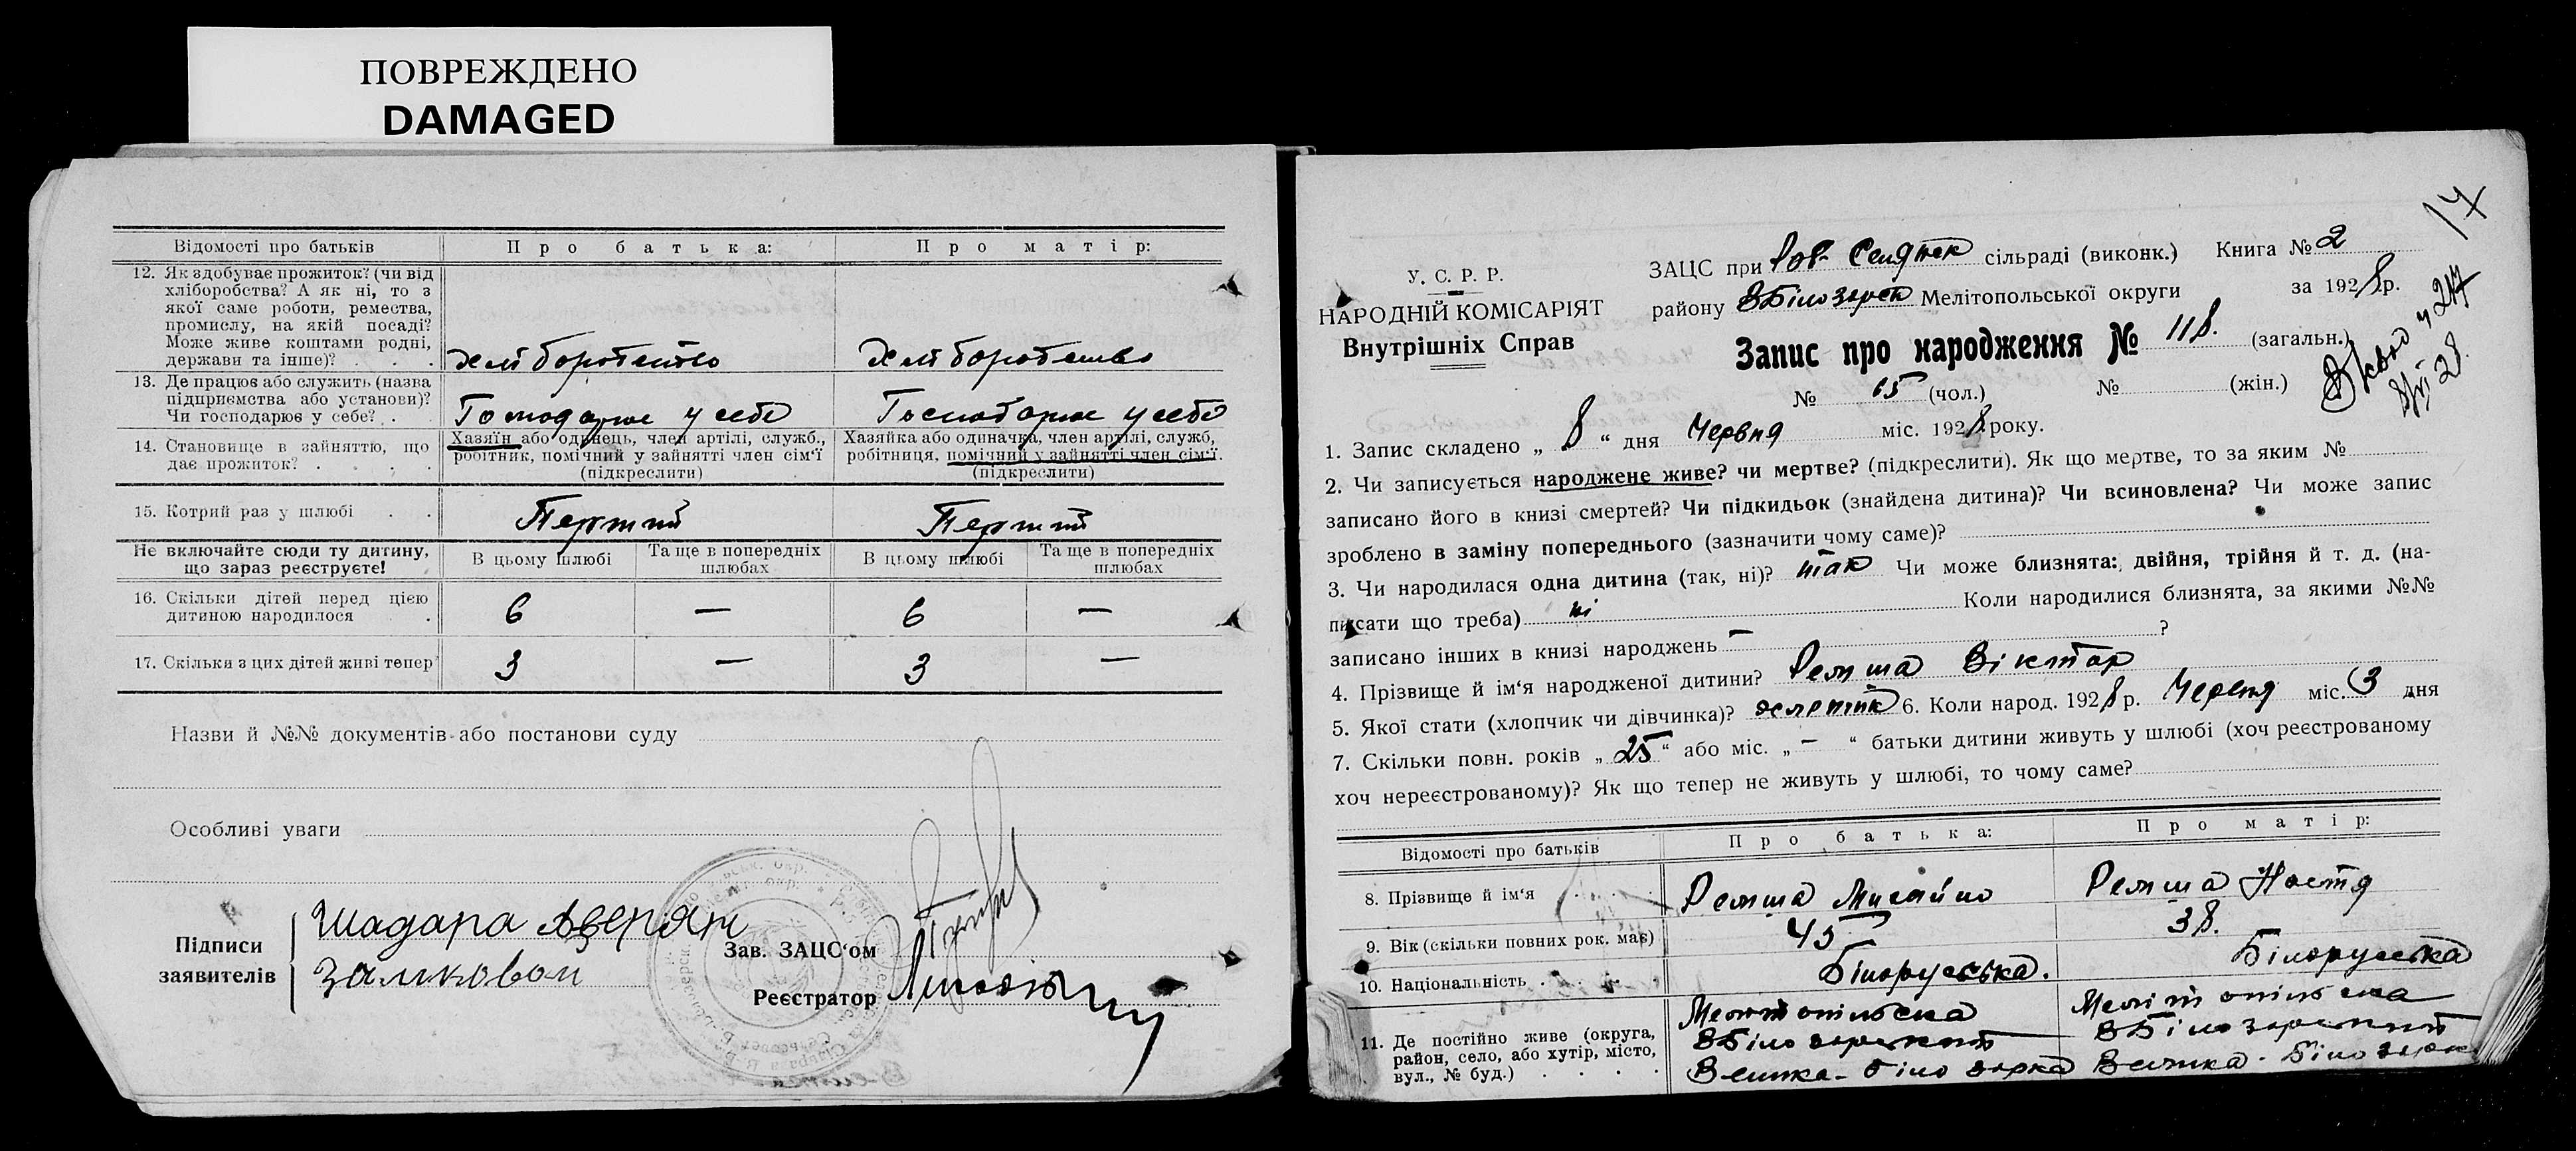 ПОВРЕЖДЕНО
DAMAGED
Відомості про батьків
Про батька:
Про матір:
12. Як здобуває прожиток? (чи від
хліборобства? А як ні, то з
якої саме роботи, ремества,
промислу, на якій посаді?
Може живе коштами родні,
держави та інше)? . . .
Хліборобство
Хліборобство
13. Де працює або служить (назва
підприємства або установи)?
Чи господарює у себе? . .
Господарює у себе
Господарює у себе
14. Становище в зайняттю, що
дає прожиток? . . . .
Хазяїн або одинець, член артілі, служб.,
робітник, помічний у зайнятті член сім'ї
(підкреслити)
Хазяйка або одиначка, член артілі, служб,
робітниця, помічний у зайнятті член сім'ї.
(підкреслити)
15. Котрий раз у шлюбі . .
Перший
Перший
Не включайте сюди ту дитину,
що зараз реєструєте!
В цьому шлюбі
Та ще в попередніх
шлюбах
В цьому шлюбі
Та ще в попередніх
шлюбах
16. Скільки дітей перед цією
дитиною народилося .
6 — 6 —
17. Скільки з цих дітей живі тепер?
3 — 3 —
Назви й №№ документів або постанови суду
Особливі уваги
Підписи
заявителів
Шадара Аверян
Зав. ЗАЦС'ом
Реєстратор
17
У. С. Р. Р.
НАРОДНІЙ КОМІСАРІЯТ
Внутрішніх Справ
ЗАЦС при сільраді (виконк.) Книга № 2
району ВБілозерськ Мелітопольської округи за 1928 р.
Запис про народження № 118. (загальн.)
№ 65 (чол.) № (жін.)
1. Запис складено „ 8 “ дня Червня міс. 1928 року.
2. Чи записується народжене живе? чи мертве? (підкреслити). Як що мертве, то за яким №
записано його в книзі смертей? Чи підкидьок (знайдена дитина)? Чи всиновлена? Чи може запис
зроблено в заміну попереднього (зазначити чому саме)?
3. Чи народилася одна дитина (так, ні)? так Чи може близнята: двійня, трійня й т. д. (на-
писати що треба) ні Коли народилися близнята, за якими №№
записано інших в книзі народжень — ?
4. Прізвище й ім'я народженої дитини? Ремша Віктор
5. Якої стати (хлопчик чи дівчинка)? 6. Коли народ. 1928 р. Червня міс. 3 дня
7. Скільки повн. років „ 25 “ або міс. „ — “ батьки дитини живуть у шлюбі (хоч реєстрованому
хоч нереєстрованому)? Як що тепер не живуть у шлюбі, то чому саме?
Відомості про батьків
Про батька:
Про матір:
8. Прізвище й ім'я
Ремша Михайло
Ремша Настя
9. Вік (скільки повних рок. має)
45
38.
10. Національність . .
Білоруська.
Білоруська
11. Де постійно живе (округа,
район, село, або хутір, місто,
вул., № буд.) . . . .
Мелітопільська
ВБілозерський
Велика-Білозорка
Мелітопільська
ВБілозерський
Велика-Білозорка